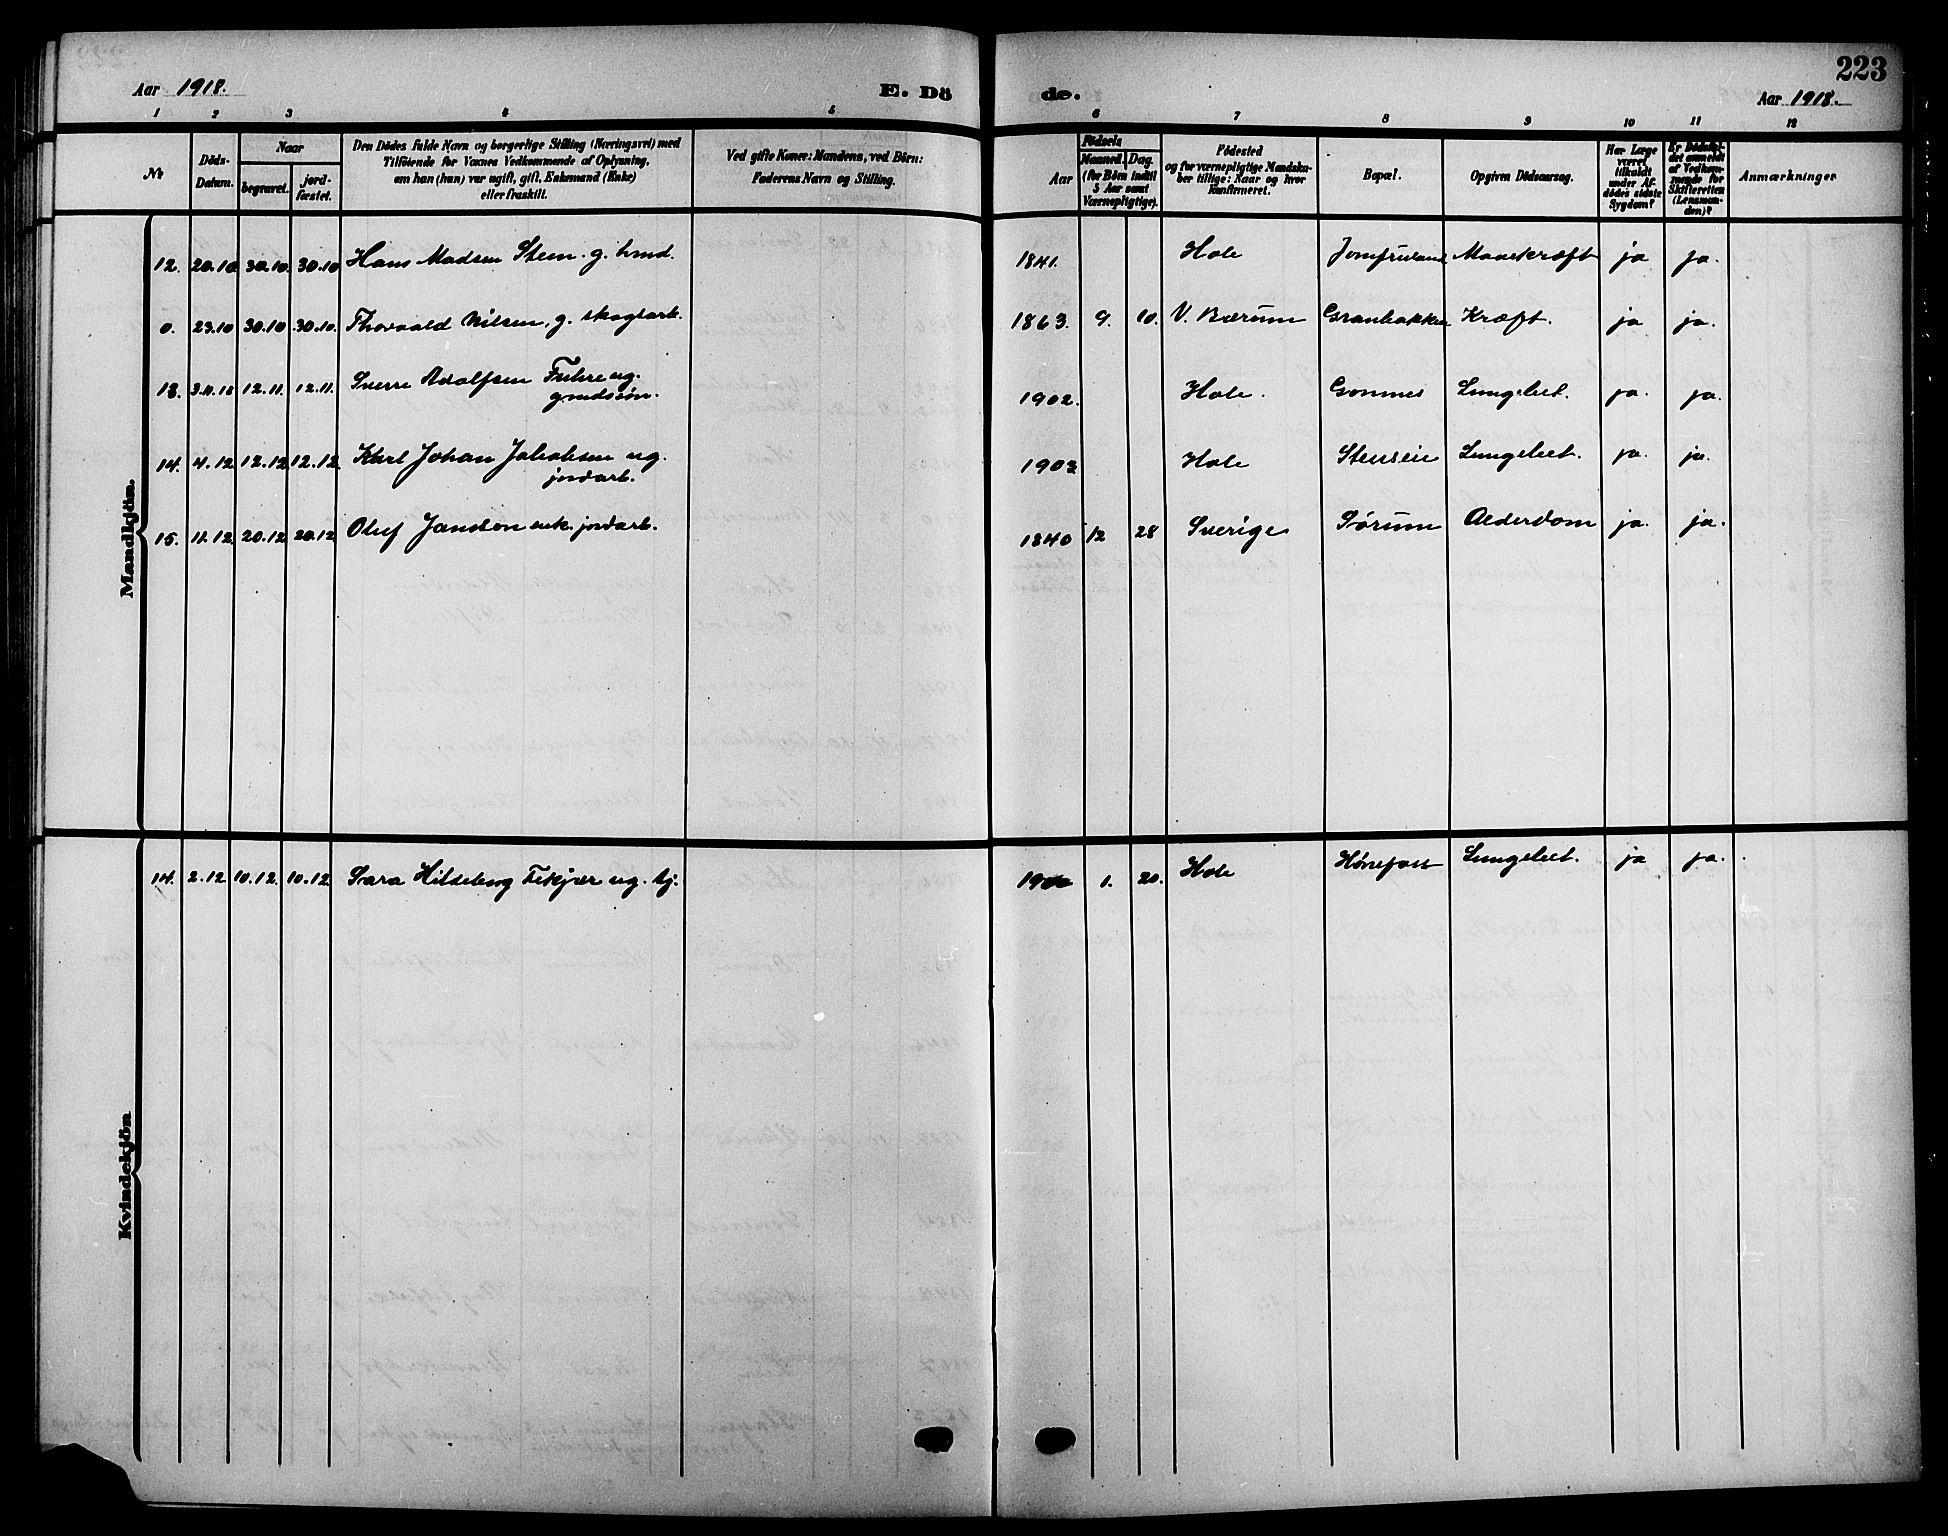 223
Aar 1918.
E. Dö
de.
Aar 1918.
1 2 3 4 5 6 7 8 9 10 11 12
No
Døds-
Datum.
Naar
begravet.
jord-
fæstet.
Den Dødes fulde Navn og borgerlige Stilling (Næringsvei) med
Tilføiende for Voxnes Vedkommende af Oplysning,
om han (hun) var ugift, gift, Enkemand (Enke)
eller fraskilt.
Ved gifte Koner: Mandens, ved Börn:
Faderens Navn og Stilling.
Aar
Födsels
Maaned. Dag.
(for Börn indtil
5 Aar samt
Værnepligtige).
Födested
og for værnepligtige Mandska-
ber tillige: Naar og hvor
konfirmeret.
Bopæl.
Opgiven Dödsaarsag.
Har Læge
været
tilkaldt
under Af-
dødes sidste
Sygdom?
Er Dødsfal-
det anmeldt
af Vedkom-
mende for
Skifteretten
(Lensman-
den)?
Anmærkninger
Mandkjön.
12. 20.10 30.10. 30.10 Hans Madsen Steen. g. lmd. 1841. Hole Jomfruland Mavekræft ja ja.
0. 23.10 30.10 30.10. Thorvald Nilsen, g. skogsarb. 1863. 9. 10. V. Bærum Granbakken Kræft. ja ja.
13. 3.11.18 12.11. 12.11. Sverre Adolfsen Fuhre ug.
gmdssøn. 1902. Hole. Gommes Lungebet. ja. ja.
14. 4.12 12.12 12.12. Karl Johan Jakobsen ug.
jordarb. 1903 Hole Stenseie Lungebet. ja. ja.
15. 11.12. 20.12 20.12 Oluf Jansson enk. jordarb. 1840 12 28 Sverige Sørum Alderdom ja. ja.
Kvindekjön
14. 2.12 10.12. 10.12. Sara Hildeborg Fekjær ug. tj. 1. 20. Hole Hønefoss Lungebet. ja ja.